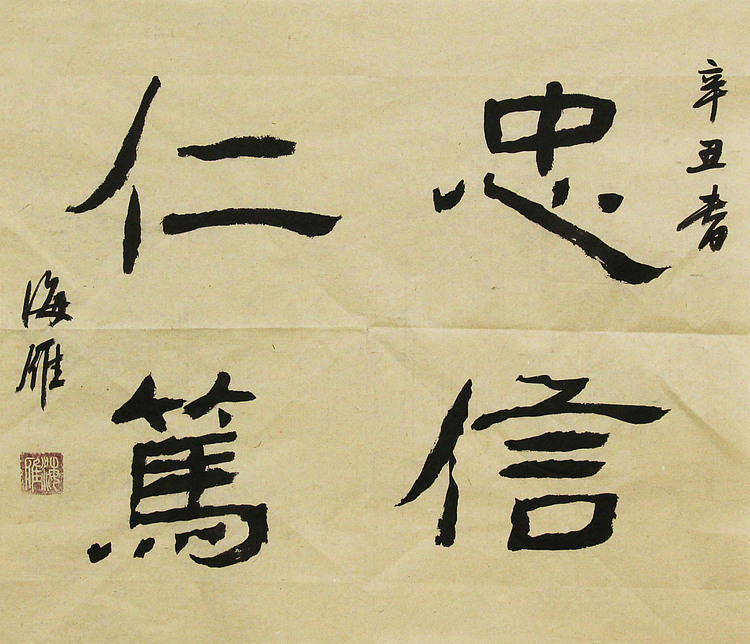 辛丑書
忠信
仁篤
海雁
海雁